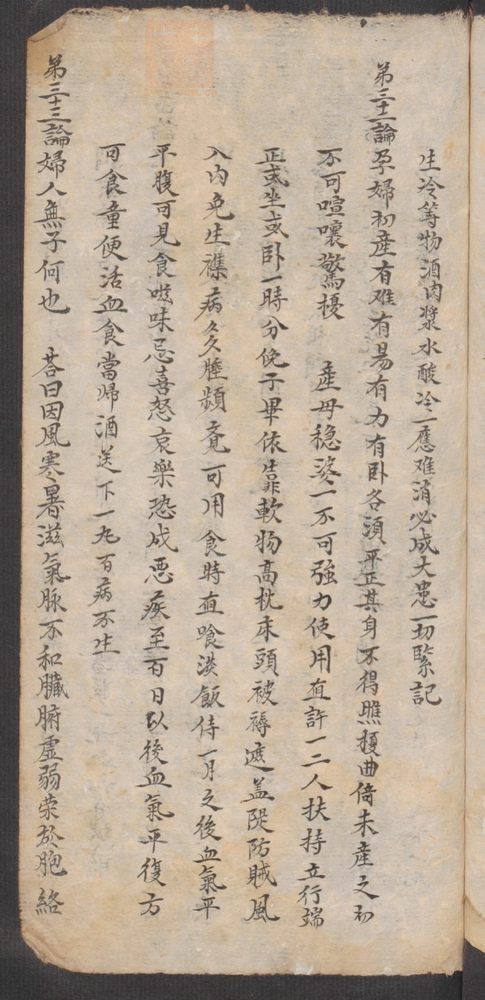 生冷等物酒肉漿水酸冷一應难消必成大患一切緊記
第三十二論孕婦初產有难有易有力有卧各須平正其身不得擾曲倚未產之初
不可喧嚷驚擾　產母稳婆一不可強力使用直許一二人扶持立行端
正或坐或卧一時分俛子畢依靠軟物高枕床頭被褥遮盖隄防賊風
入内免生襍病久久睡頻竟可用食時直喰淡飯待一月之後血氣平
平腹可見食滋味忌喜怒哀樂恐成悪疾至百日以後血氣平復方
可食童便活血食當帰酒送下一丸百病不生
第三十三論婦人無子何也　荅曰因風寒暑滋氣脉不和臟腑虚弱荣於胞絡